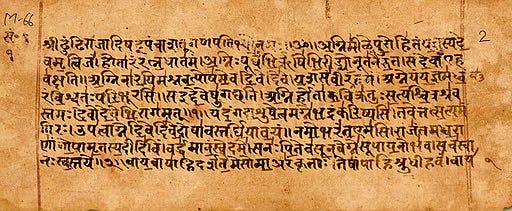 M-66
सं॰ ६
१
2
श्रीढुंढिराजादिषट्पंचाशद्गणपतिभ्यो नमः ॥ ॐ ॥ अग्निमीळे पुरोहितं यज्ञस्य दे
वमृत्विजं । होतारं रत्नधातमं । अग्निः पूर्वेभिर्ऋषिभिरीड्यो नूतनैरुत । स देवाँ एह
वक्षति ॥ अग्निना रयिमश्नवत्पोषमेव दिवेदिवे । यशसं वीरवत्तमं ॥ अग्ने यं यज्ञमध्व
रं विश्वतः परिभूरसि ॥ स इद्देवेषु गच्छति ॥ अग्निर्होता कविक्रतुः सत्यश्चित्रश्रव
स्तमः । देवो देवेभिरागमत् ॥ १ ॥ यदंग दाशुषे त्वमग्ने भद्रं करिष्यसि । तवेत्तत्सत्यमं
गिरः । उप त्वाग्ने दिवेदिवे दोषावस्तर्धिया वयं ॥ नमो भरंत एमसि ॥ राजंतमध्वरा
णां गोपामृतस्य दीदिविं । वर्द्धमानं स्वे दमे ॥ स नः पितेव सूनवेग्ने सूपायनो भव ॥ सचस्वा
नः स्वस्तये ॥ २ ॥ वायवा याहि दर्शतेमे सोमा अरंकृताः । तेषां पाहि श्रुधी हवं ॥ वाय